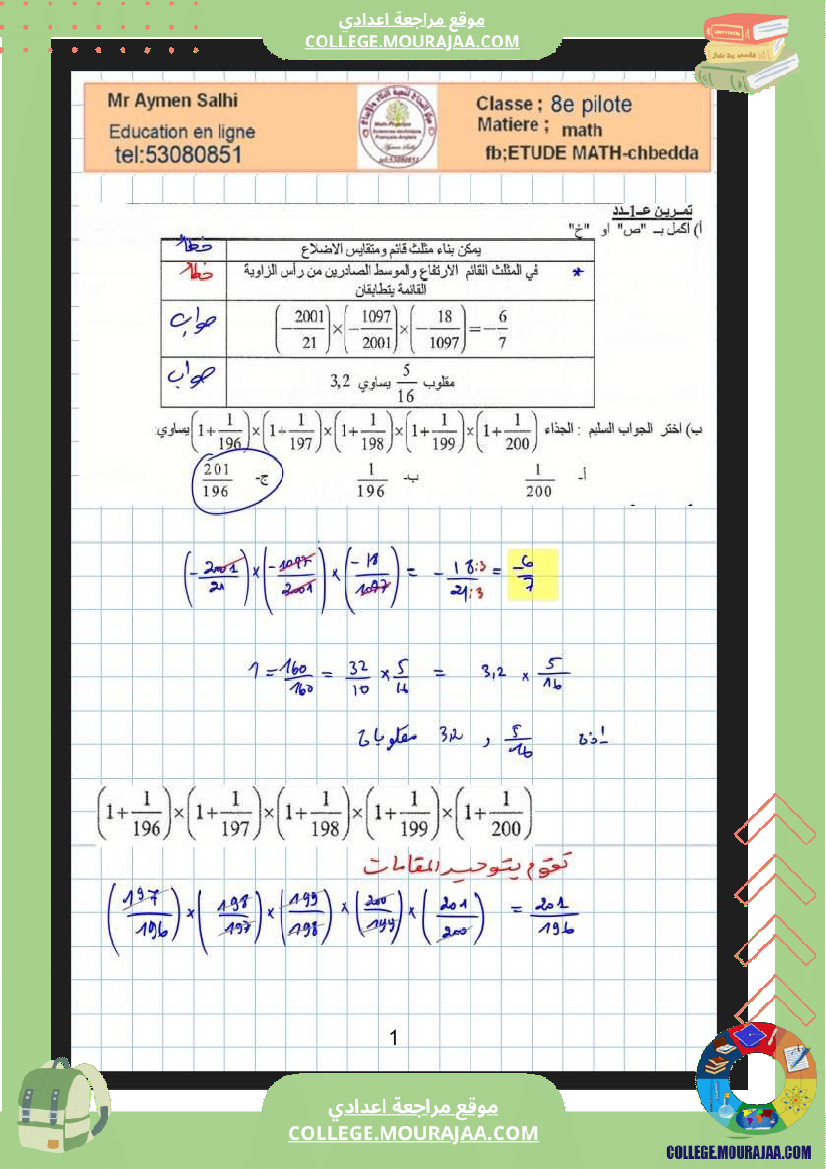 موقع مراجعة اعدادي
COLLEGE.MOURAJAA.COM
Mr Aymen Salhi
Education en ligne
tel:53080851
Classe ; 8e pilote
Matiere ; math
fb;ETUDE MATH-chbedda
تمرين عـ1ـدد
أ) اكمل بـ "ص" او "خ"
يمكن بناء مثلث قائم ومتقايس الاضلاع خطأ
* في المثلث القائم الارتفاع والموسط الصادرين من رأس الزاوية القائمة يتطابقان خطأ
(-2001/21)×(-1097/2001)×(-18/1097)=-6/7 صواب
مقلوب 5/16 يساوي 3,2 صواب
ب) اختر الجواب السليم : الجذاء (1+1/196)×(1+1/197)×(1+1/198)×(1+1/199)×(1+1/200) يساوي:
أ- 1/200 ب- 1/196 ج- 201/196
(-2001/21)×(-1097/2001)×(-18/1097) = -18:3/21:3 = -6/7
1 = 160/160 = 32/10 × 5/16 = 3,2 × 5/16
إذن 5/16 و 3,2 مقلوبان
(1+1/196)×(1+1/197)×(1+1/198)×(1+1/199)×(1+1/200)
نقوم بتوحيد المقامات
(197/196)×(198/197)×(199/198)×(200/199)×(201/200) = 201/196
1
موقع مراجعة اعدادي
COLLEGE.MOURAJAA.COM
COLLEGE.MOURAJAA.COM